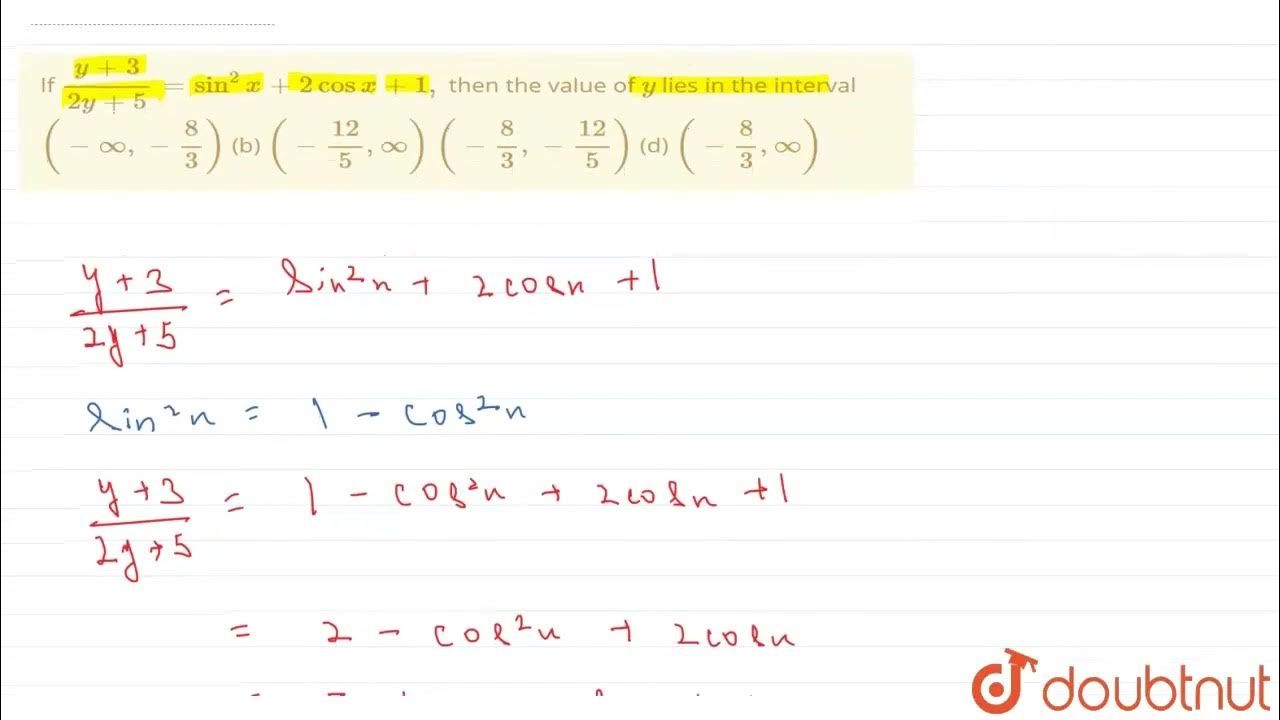 If (y + 3)/(2y + 5) = sin² x + 2 cos x + 1, then the value of y lies in the interval
(−∞, −8/3) (b) (−12/5, ∞) (−8/3, −12/5) (d) (−8/3, ∞)
(y + 3)/(2y + 5) = sin²x + 2cosx + 1
sin²x = 1 − cos²x
(y + 3)/(2y + 5) = 1 − cos²x + 2cosx + 1
= 2 − cos²x + 2cosx
doubtnut